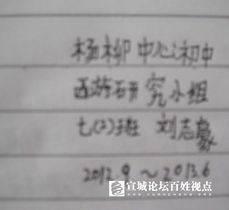 杨柳中心初中
西游研究小组
七(2)班 刘志豪
2012.9~2013.6
宣城论坛百姓视点